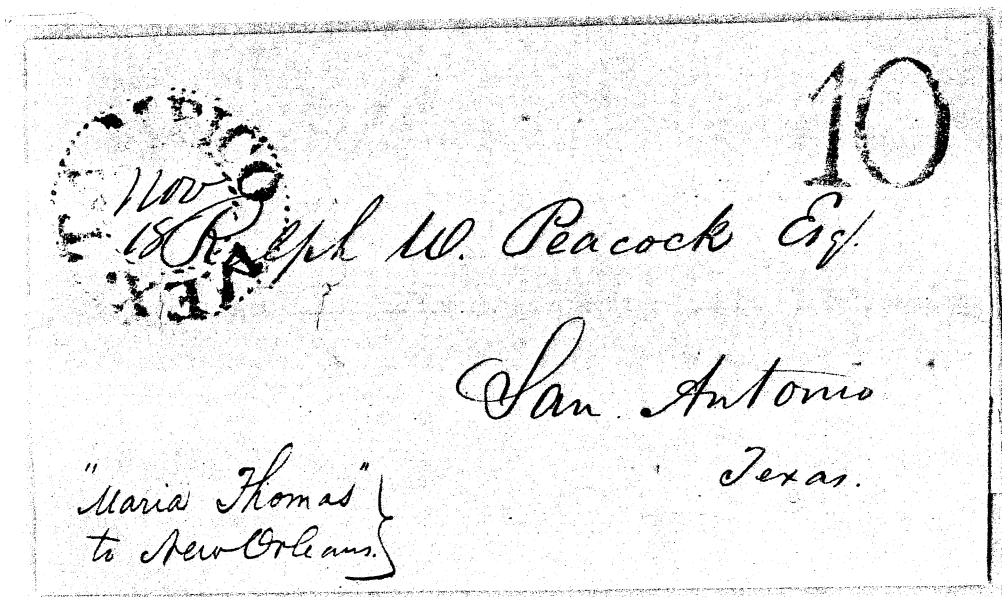 10
Nov
18
Ralph W. Peacock Esq.
San Antonio
Texas.
"Maria Thomas"
to New Orleans.